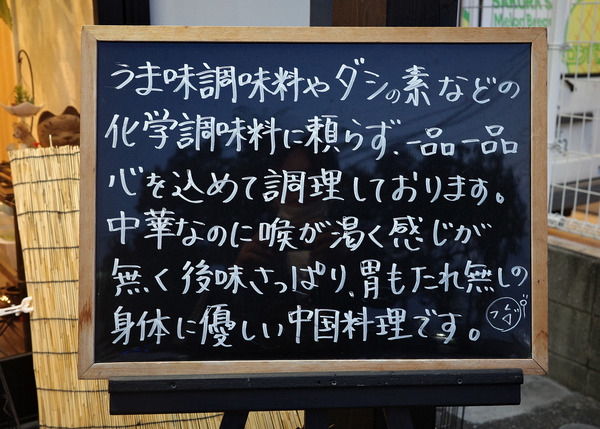 うま味調味料やダシの素などの
化学調味料に頼らず、一品一品
心を込めて調理しております。
中華なのに喉が渇く感じが
無く後味さっぱり、胃もたれ無しの
身体に優しい中国料理です。
SAKURA'S